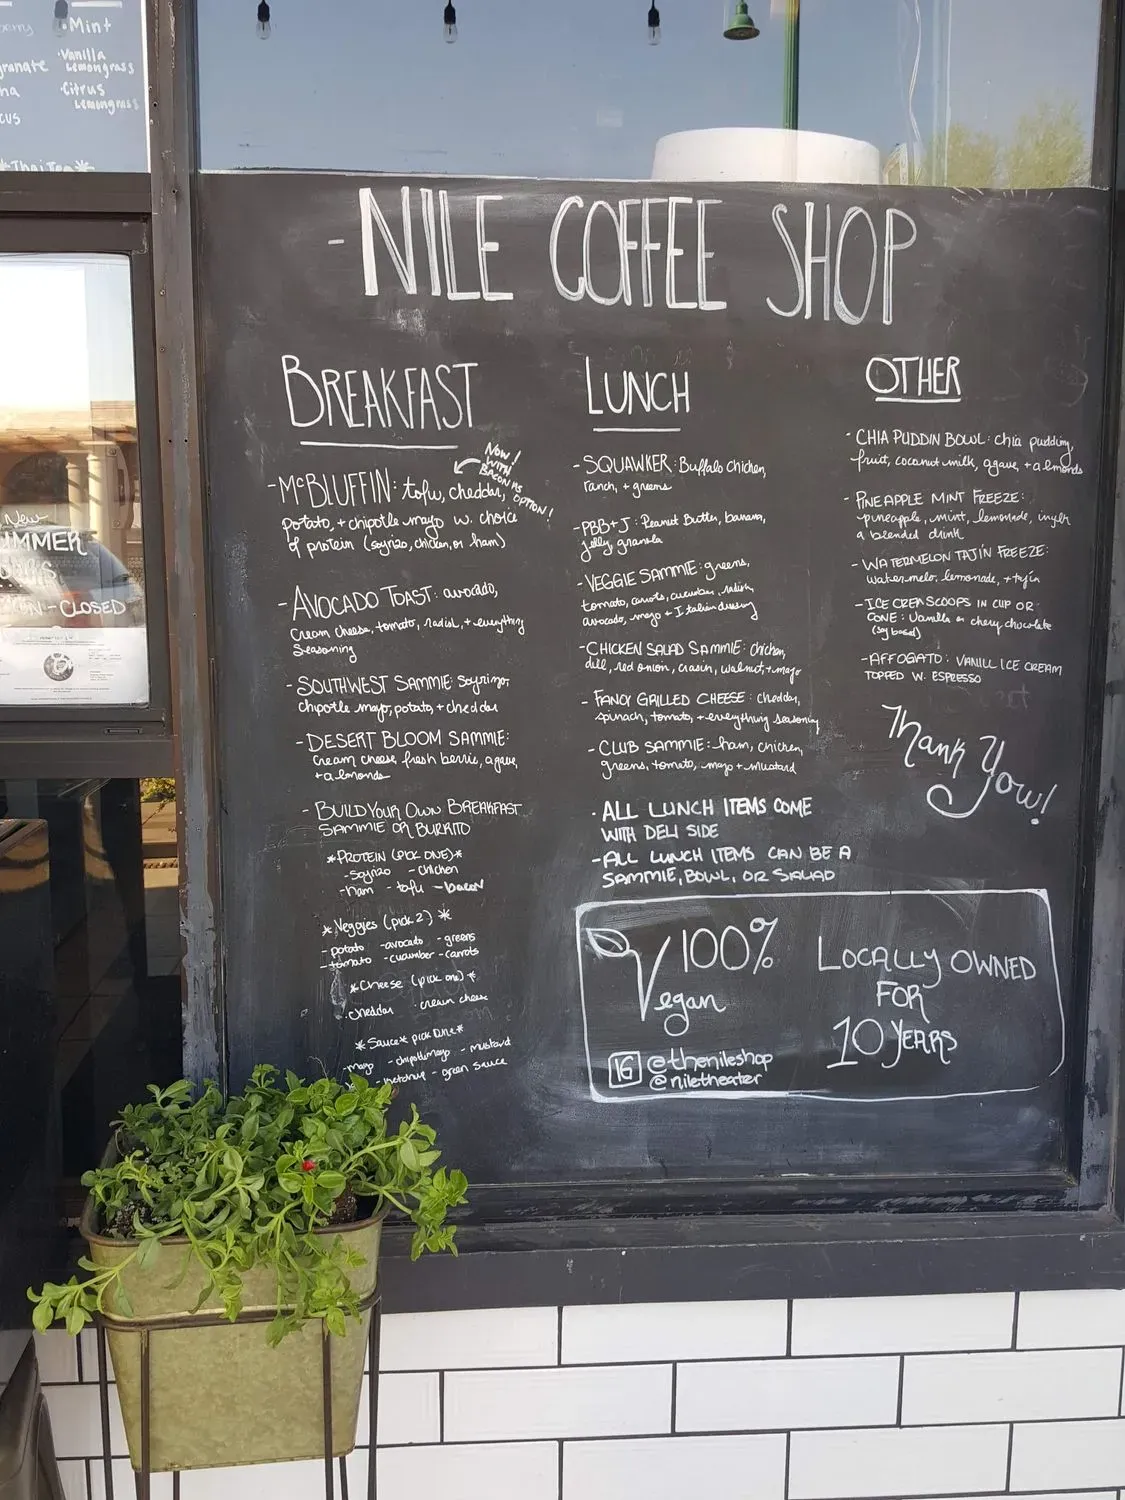 Mint
Vanilla
Lemongrass
Citrus
Lemongrass
*Thai Tea*
New
- CLOSED
- NILE COFFEE SHOP
BREAKFAST
NOW!
WITH
BACON AS
OPTION!
- McBLUFFIN: tofu, cheddar,
potato, + chipotle mayo w. choice
of protein (soyrizo, chicken, or ham)
- AVOCADO TOAST: avocado,
cream cheese, tomato, radish, + everything
Seasoning
- SOUTHWEST SAMMIE: Soyrizo,
chipotle mayo, potato, + cheddar
- DESERT BLOOM SAMMIE:
cream cheese fresh berrie, agave,
+ almonds
- BUILD YOUR OWN BREAKFAST
SAMMIE OR BURRITO
*PROTEIN (PICK ONE)*
- soyrizo - chicken
- ham - tofu - bacon
*Veggies (pick 2)*
- potato - avocado - greens
- tomato - cucumber - carrots
*Cheese (pick one)*
- cheddar · cream cheese
*Sauce* pick one*
- mayo - chipotle mayo - mustard
ketchup - green sauce
LUNCH
- SQUAWKER: Buffalo chicken,
ranch, + greens
- PBB+J: Peanut Butter, banana,
jelly, granola
- VEGGIE SAMMIE: greens,
tomato, carrots, cucumber, radish,
avocado, mayo + Italian dressing
- CHICKEN SALAD SAMMIE: chicken,
dill, red onion, craisin, walnut, + mayo
- FANCY GRILLED CHEESE: cheddar,
spinach, tomato, + everything seasoning
- CLUB SAMMIE: ham, chicken,
greens, tomato, mayo + mustard
· ALL LUNCH ITEMS COME
WITH DELI SIDE
- ALL LUNCH ITEMS CAN BE A
SAMMIE, BOWL, OR SALAD
OTHER
- CHIA PUDDIN BOWL: chia pudding,
fruit, coconut milk, agave, + almonds
- PINEAPPLE MINT FREEZE:
pineapple, mint, lemonade,
a blended drink
- WATERMELON TAJÍN FREEZE:
watermelo, lemonade, + tajín
- ICE CREA SCOOPS IN CUP OR
CONE: Vanilla or cherry chocolate
(soy based)
- AFFOGATO: VANILL ICE CREAM
TOPPED W. ESPRESSO
Thank You!
100%
Vegan
IG @thenileshop
@niletheater
LOCALLY OWNED
FOR
10 YEARS